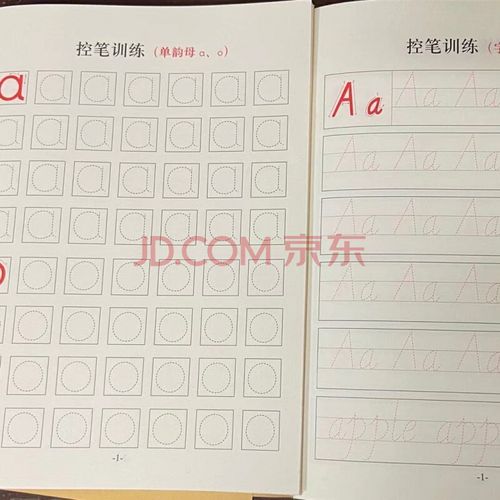 控笔训练（单韵母 ɑ、o）
ɑ ɑ ɑ ɑ ɑ ɑ ɑ
ɑ ɑ ɑ ɑ ɑ ɑ ɑ
ɑ ɑ ɑ ɑ ɑ ɑ ɑ
ɑ ɑ ɑ ɑ ɑ ɑ ɑ
o o o o o o o
o o o o o o o
o o o o o o o
o o o o o o o
-1-
控笔训练（字
Aa Aa Aa
Aa Aa Aa
Aa Aa Aa
Aa Aa Aa
Aa Aa Aa
apple app
-1-
JD.COM 京东